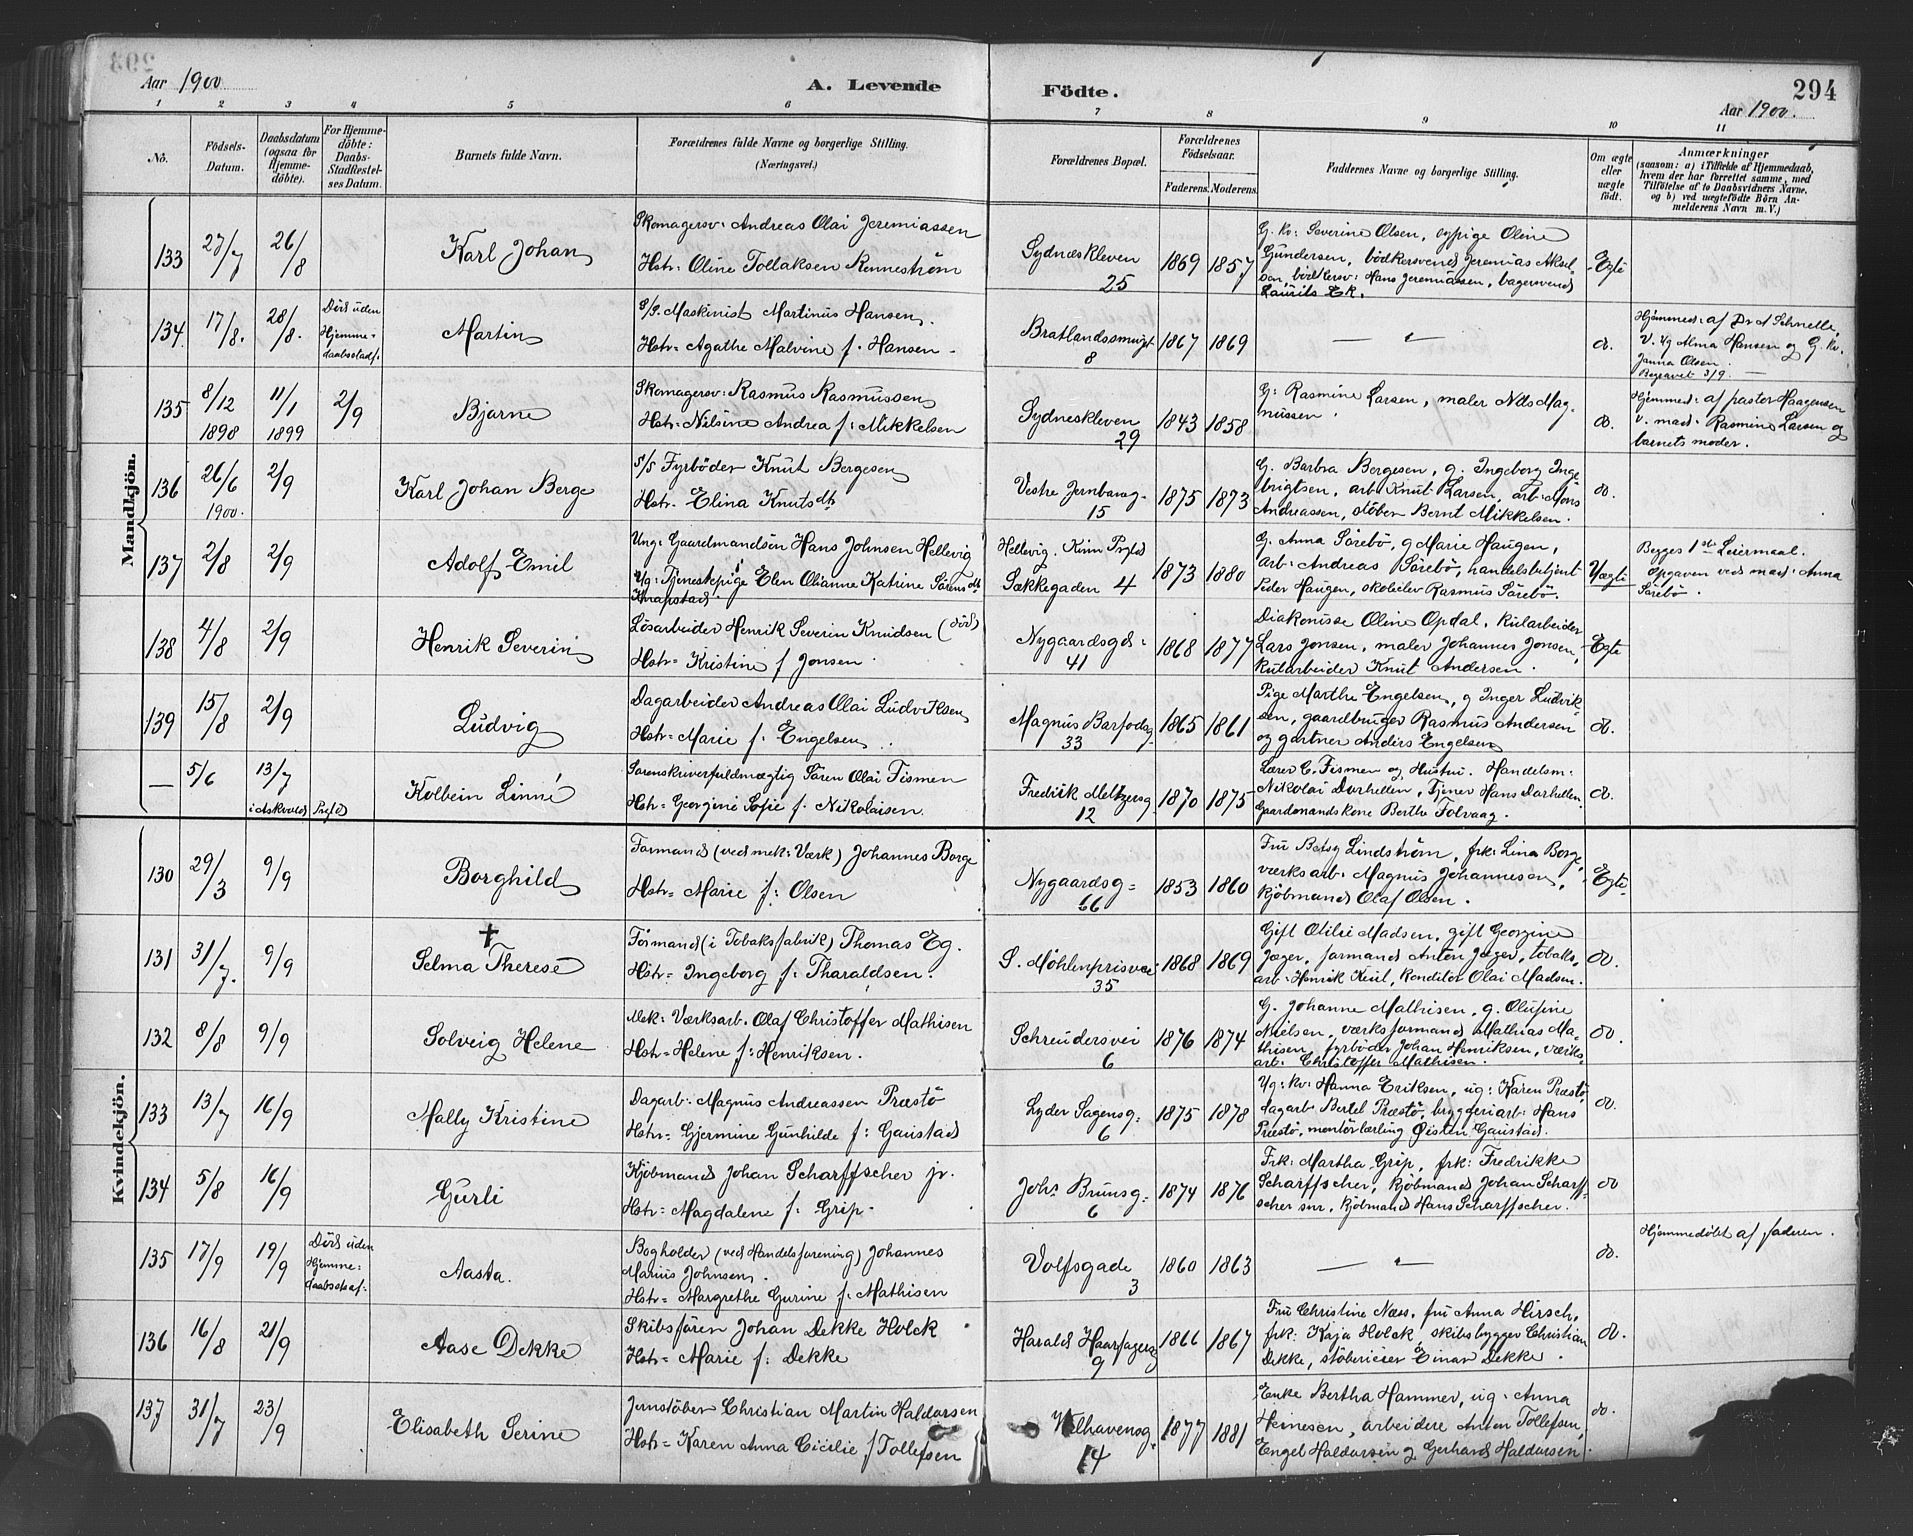 Aar 1900
A. Levende Födte.
294
Aar 1900.
1 2 3 4 5 6 7 8 9 10 11
No.
Födsels-
Datum.
Daabsdatum
(ogsaa for
Hjemme-
döbte).
For Hjemme-
döbte:
Daabs-
Stadfæstel-
ses Datum.
Barnets fulde Navn.
Forældrenes fulde Navne og borgerlige Stilling.
(Næringsvei.)
Forældrenes Bopæl.
Forældrenes
Födselsaar.
Faderens. Moderens.
Faddernes Navne og borgerlige Stilling.
Om ægte
eller
uægte
födt.
Anmærkninger
(saasom: a) i Tilfælde af Hjemmedaab,
hvem der har forrettet samme, med
Tilföielse af to Daabsvidners Navne,
og b) ved uægtefödte Börn An-
melderens Navn m. V.)
Mandkjön.
133 27/7 26/8
Karl Johan
Skomagersv: Andreas Olai Jeremiassen
Hstr: Oline Tollaksen Renneström
Sydneskleven
25
1869 1857
G. kv: Severine Olsen, og pige Oline
Gundersen, bödkersvend Jeremias Aksel-
sen, bödkersv: Hans Jeremiassen, bagersvend
Laurits Ek.
Egte
134. 17/8. 28/8.
Död uden
Hjemme-
daabsstadf.
Martin
S/S. Maskinist Martinus Hansen.
Hstr: Agathe Malvine f. Hansen.
Bratlandssmuget
8
1867 1869
— " —
do.
Hjemmed: af Dr A Schnelle,
v. ug Alma Hansen og G. kv.
Janna Olsen.
Begravet 3/9.
135 8/12 1898 11/1 1899 2/9
Bjarne
Skomagersv: Rasmus Rasmussen
Hstr: Nilsine Andrea f: Mikkelsen
Sydneskleven
29
1843 1858
G: Rasmine Larsen, maler Nils Mag-
nussen.
do.
Hjemmed: af pastor Haagensen
v. mad: Rasmine Larsen og
barnets moder.
136 26/6 1900. 2/9
Karl Johan Berge
S/S Fyrböder Knut Bergesen
Hstr. Elina Knutsdt
Vestre Jernbaneg.
15
1875 1873
G. Barbra Bergesen, g. Ingeborg Inge-
brigtsen, arb: Knut Larsen, arb: Mons
Andreassen, stöber Bernt Mikkelsen.
do.
137 2/8 2/9
Adolf Emil
Ung: Gaardmandsön Hans Johnsen Hellevig
Ug: Tjenestepige Elen Olianne Katrine Sörensdt
Knapstad.
Hellevig. Kinn Prgld
Sækkegaden 4
1873 1880
G. Anna Sörebö, g Marie Haugen,
arb: Andreas Sörebö, handelsbetjent
Peder Haugen, skoleelev Rasmus Sörebö.
Uægte
Begges 1ste Leiermaal.
Opgaven ved mad: Anna
Sörebö.
138 4/8 2/9
Henrik Severin
Lösarbeider Henrik Severin Knudsen (död)
Hstr: Kristine f Jonsen.
Nygaardsgd:
41
1868 1877
Diakonisse Oline Opdal, kularbeider
Lars Jonsen, maler Johannes Jonsen,
kularbeider Knut Andersen.
Egte
139 15/8 2/9
Ludvig
Dagarbeider Andreas Olai Ludviksen
Hstr: Marie f: Engelsen.
Magnus Barfodsg.
33
1865 1861
Pige Marthe Engelsen, g Inger Ludvik-
sen, gaardbruger Rasmus Andersen
og gartner Anders Engelsen
do.
— 5/6 13/7
i Askvold Prgld
Kolbein Linné
Sorenskriverfuldmægtig Sören Olai Tismen
Hstr: Georgine Sofie f. Nikolaisen.
Fredrik Meltzersg.
12
1870 1875
Lærer C. Tismen og Hustru. Handelsm:
Nikolai Dorhellen, Tjener Hans Dorhellen
Gaardmandskone Berthe Folvaag.
do.
Kvindekjön.
130 29/3 9/9
Borghild
Formand (ved mek: Værk) Johannes Borge
Hstr: Marie f: Olsen
Nygaardsg:
66
1853 1860
Fru Betsy Lindström, frk: Lina Borge,
værksarb: Magnus Johannesen,
kjöbmand Olaf Olsen.
Egte
131 31/7. 9/9
†
Selma Therese
Formand (i Tobaksfabrik) Thomas Eg.
Hstr: Ingeborg f: Tharaldsen.
S. Möhlenprisvei
35
1868 1869
Gift Otilie Madsen, gift Georgine
Jæger, formand Anton Jæger, tobaks-
arb: Henrik Keil, konditor Olai Madsen.
do.
132 8/8 9/9
Solveig Helene
Mek: Værksarb. Olaf Christoffer Mathisen
Hstr: Helene f: Henriksen.
Schreudersvei
6
1876 1874
G. Johanne Mathisen, g. Olufine
Nielsen, værksformand Mathias Ma-
thisen, fyrböder Johan Henriksen, værks-
arb: Christoffer Mathisen.
do.
133 13/7 16/9
Mally Kristine
Dagarb: Magnus Andreassen Præstö
Hstr: Gjermine Gunhilde f: Gaustad
Lyder Sagensg:
6
1875 1878
Ug: kv: Hanna Eriksen, ug: Karen Præstö,
dagarb Bertel Præstö, bryggeriarb: Hans
Præstö, montörlærling Øisten Gaustad.
do.
134 5/8 16/9
Gurli
Kjöbmand Johan Scharffscher jr.
Hstr: Magdalene f: Grip.
Johs Brunsg:
6
1874 1876
Frk: Martha Grip, frk: Fredrikke
Scharffscher, kjöbmand Johan Scharff-
scher snr, kjöbmand Hans Scharffscher.
do
135 17/9 19/9
Död uden
Hjemme-
daabsstadf.
Aasta.
Bogholder (ved Handelsforening) Johannes
Marius Johnsen.
Hstr: Margrethe Gurine f: Mathisen
Volfsgade
3
1860 1863
— " —
do.
Hjemmedöbt af faderen.
136 16/8 21/9
Aase Dekke
Skibsfören Johan Dekke Holck
Hstr: Marie f: Dekke
Harald Haarfagersg
9
1866 1867
Fru Christine Næss, fru Anna Hirsch,
frk: Kaja Holck, skibsbygger Christian
Dekke, stöberieier Einar Dekke.
do.
137 31/7 23/9
Elisabeth Serine
Jernstöber Christian Martin Haldorsen
Hstr: Karen Anna Cicilie f Tollefsen
Welhavensg.
14
1877 1881
Enke Bertha Hammer, ug: Anna
Heinesen, arbeidere Anton Tollefsen,
Engel Haldorsen og Gerhard Haldorsen.
do.